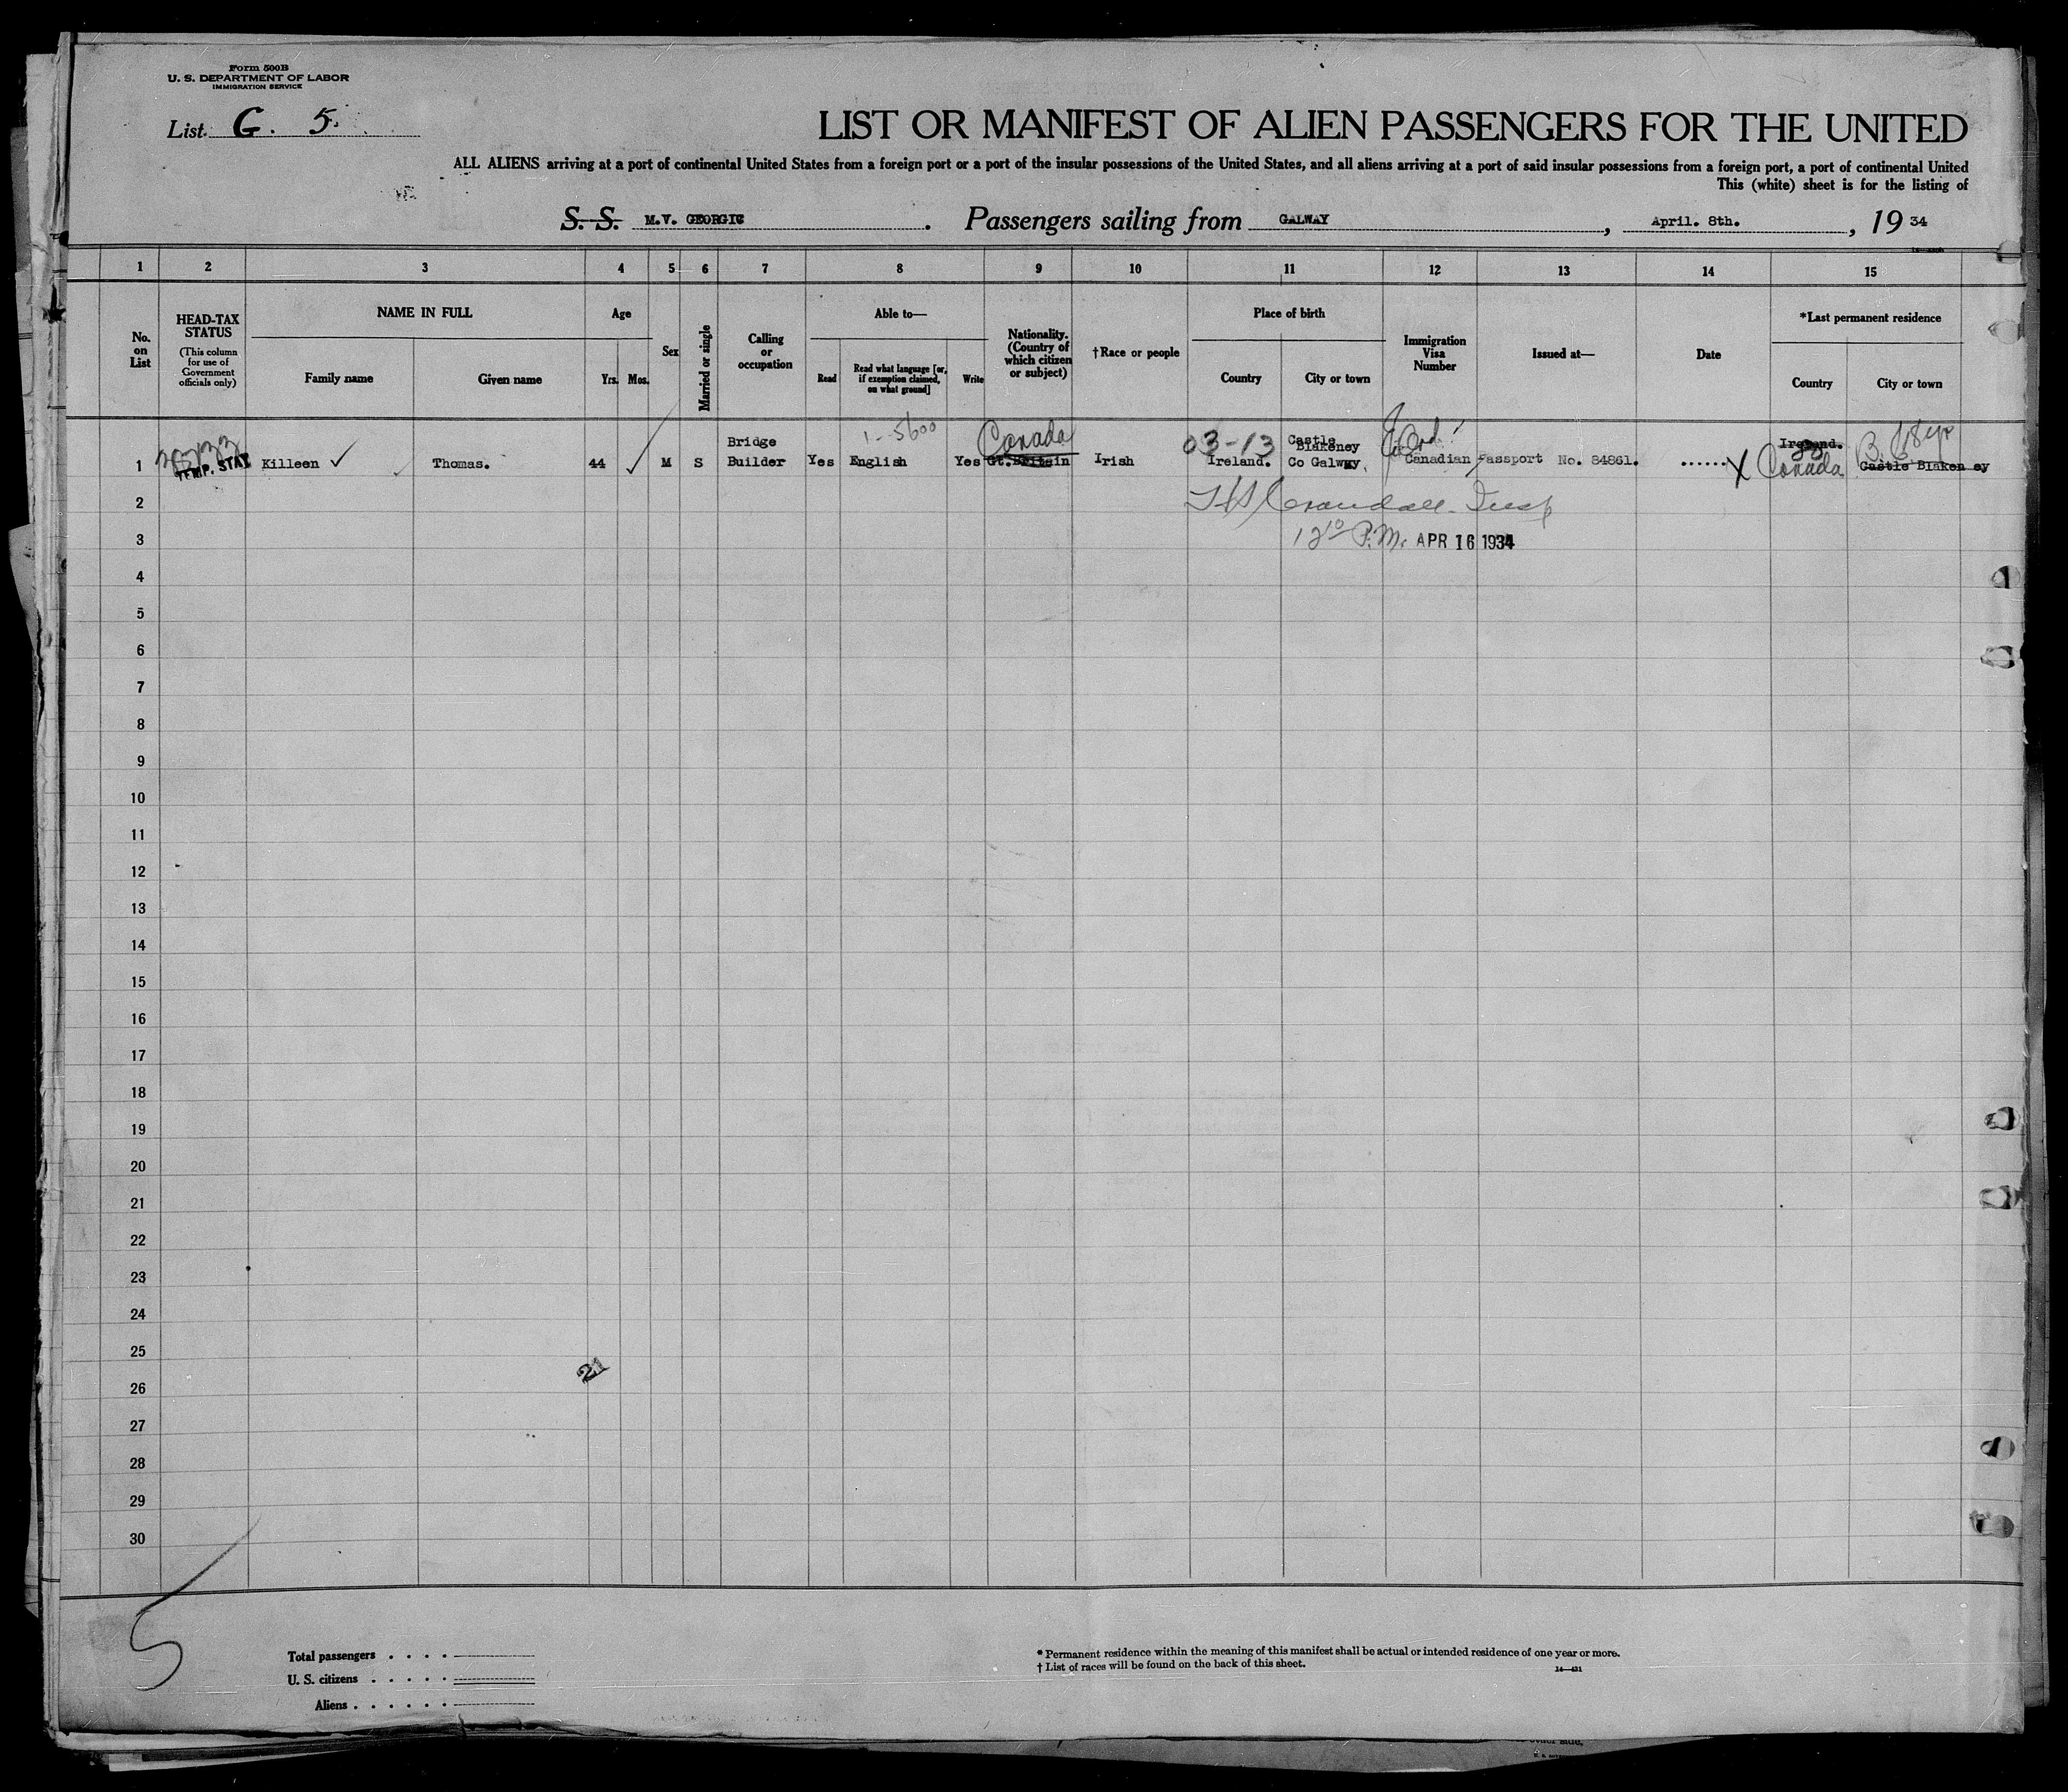 Form 500B
U. S. DEPARTMENT OF LABOR
IMMIGRATION SERVICE
List G. 5.
LIST OR MANIFEST OF ALIEN PASSENGERS FOR THE UNITED
ALL ALIENS arriving at a port of continental United States from a foreign port or a port of the insular possessions of the United States, and all aliens arriving at a port of said insular possessions from a foreign port, a port of continental United
This (white) sheet is for the listing of
S. S. M.V. GEORGIC. Passengers sailing from GALWAY, April. 8th., 19 34
1 2 3 4 5 6 7 8 9 10 11 12 13 14 15
No. on List
HEAD-TAX STATUS
(This column for use of Government officials only)
NAME IN FULL
Family name
Given name
Age
Yrs. Mos.
Sex
Married or single
Calling or occupation
Able to—
Read
Read what language [or, if exemption claimed, on what ground]
Write
Nationality. (Country of which citizen or subject)
†Race or people
Place of birth
Country
City or town
Immigration Visa Number
Issued at—
Date
*Last permanent residence
Country
City or town
1 TEMP. STAY Killeen ✓ Thomas. 44 ✓ M S Bridge Builder Yes English 1-5600 Yes Canada Gt.Britain Irish 03-13 Ireland. Castle Blakeney Co Galway. Canadian Passport No. 84861. ...... X Ireland. Canada Castle Blaken ey
2 Crandall Insp
3 12 10 P.M. APR 16 1934
4
5
6
7
8
9
10
11
12
13
14
15
16
17
18
19
20
21
22
23
24
25
21
26
27
28
29
30
5
Total passengers . . . .
U. S. citizens . . . . .
Aliens . . . . . .
* Permanent residence within the meaning of this manifest shall be actual or intended residence of one year or more.
† List of races will be found on the back of this sheet.
14—431